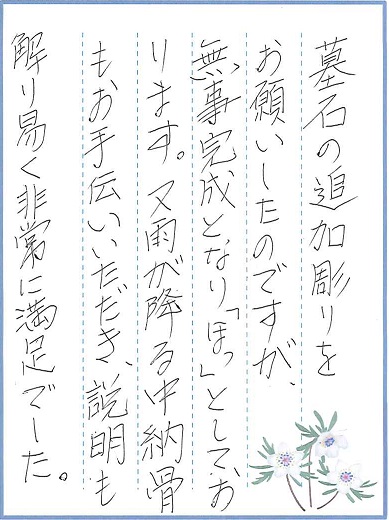 墓石の追加彫りを
お願いしたのですが、
無事完成となり「ほっ」としてお
ります。又雨が降る中納骨
もお手伝いいただき、説明も
解り易く非常に満足でした。